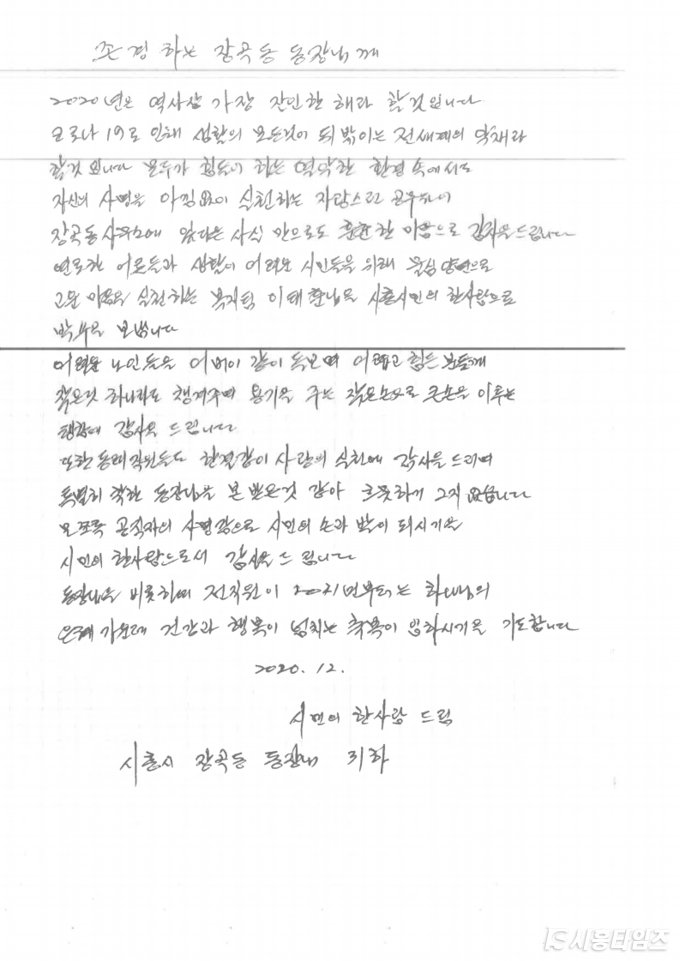 존경하는 장곡동 동장님께
2020년은 역사상 가장 잔인한 해라 할것입니다
코로나 19로 인해 생활의 모든것이 뒤바뀌는 전세계의 악재라
할것 입니다 모두가 힘들어 하는 열악한 환경 속에서도
자신의 사명을 아낌없이 실천하는 자랑스런 공무원이
장곡동 사무소에 있다는 사실 만으로도 훈훈한 마음으로 감사을 드립니다
연로한 어른들과 생활이 어려운 시민들을 위해 물심양면으로
고운 마음을 실천하는 복지팀 이태훈님을 시흥시민의 한사람으로
박수을 보냅니다
어려운 노인들을 어버이 같이 돌보며 어렵고 힘든 분들께
작은것 하나라도 챙겨주며 용기을 주는 작은손으로 큰손을 이루는
행함에 감사을 드립니다
또한 동료 직원들도 한결같이 사랑의 실천에 감사을 드리며
특별히 착한 동장님을 본 받은것 같아 흐뭇하게 그지 없습니다
모쪼록 공직자의 사명감으로 시민의 손과 발이 되시기을
시민의 한사람으로서 감사을 드립니다
동장님을 비롯하여 전직원이 2021년부터는 하나님의
은혜 가운데 건강과 행복이 넘치는 축복이 임하시기을 기도합니다
2020. 12.
시민의 한사람 드림
시흥시 장곡동 동장님 귀하
IS시흥타임즈